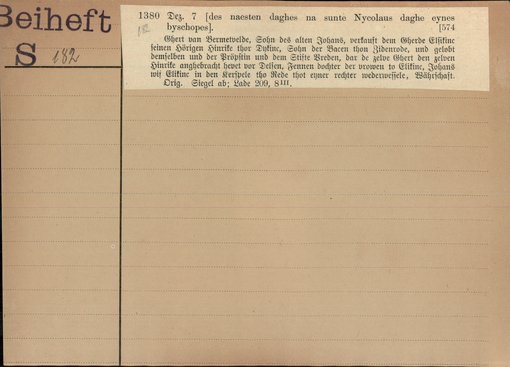 Beiheft
S 182
1380 Dez. 7 [des naesten daghes na sunte Nycolaus daghe eynes
182 byschopes]. [574
Ghert van Vermetvelde, Sohn des alten Johans, verkauft dem Gherde Elsikinc
seinen Hörigen Hinrike thor Dykine, Sohn der Bacen thon Zidenrode, und gelobt
demselben und der Pröpstin und dem Stifte Vreden, dar de zelve Ghert den zelven
Hinrike anghebracht hevet vor Delsen, Fennen dochter der vrowen to Elikinc, Johans
wif Elikinc in den Kerspele tho Rede thot eyner rechter wederwessele, Währschaft.
Orig. Siegel ab; Lade 209, 8 III.